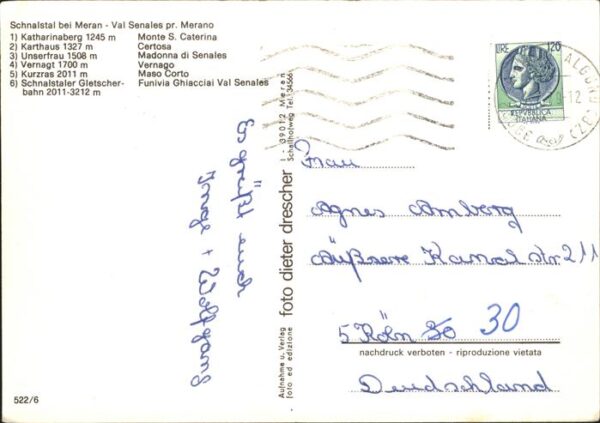 Schnalstal bei Meran - Val Senales pr. Merano
1) Katharinaberg 1245 m Monte S. Caterina
2) Karthaus 1327 m Certosa
3) Unserfrau 1508 m Madonna di Senales
4) Vernagt 1700 m Vernago
5) Kurzras 2011 m Maso Corto
6) Schnalstaler Gletscher- Funivia Ghiacciai Val Senales
bahn 2011-3212 m
Es grüßt euch
Inge + Wolfgang
522/6
Aufnahme u. Verlag
foto ed edizione
foto dieter drescher
I - 39012 Meran
Schallhofweg Tel. 34566
LIRE 120
REPVBBLICA
ITALIANA
12
(BZ)
Frau
Agnes Amberg
Äußere Kanal str 211
5 Köln 30 30
nachdruck verboten - riproduzione vietata
Deudschland